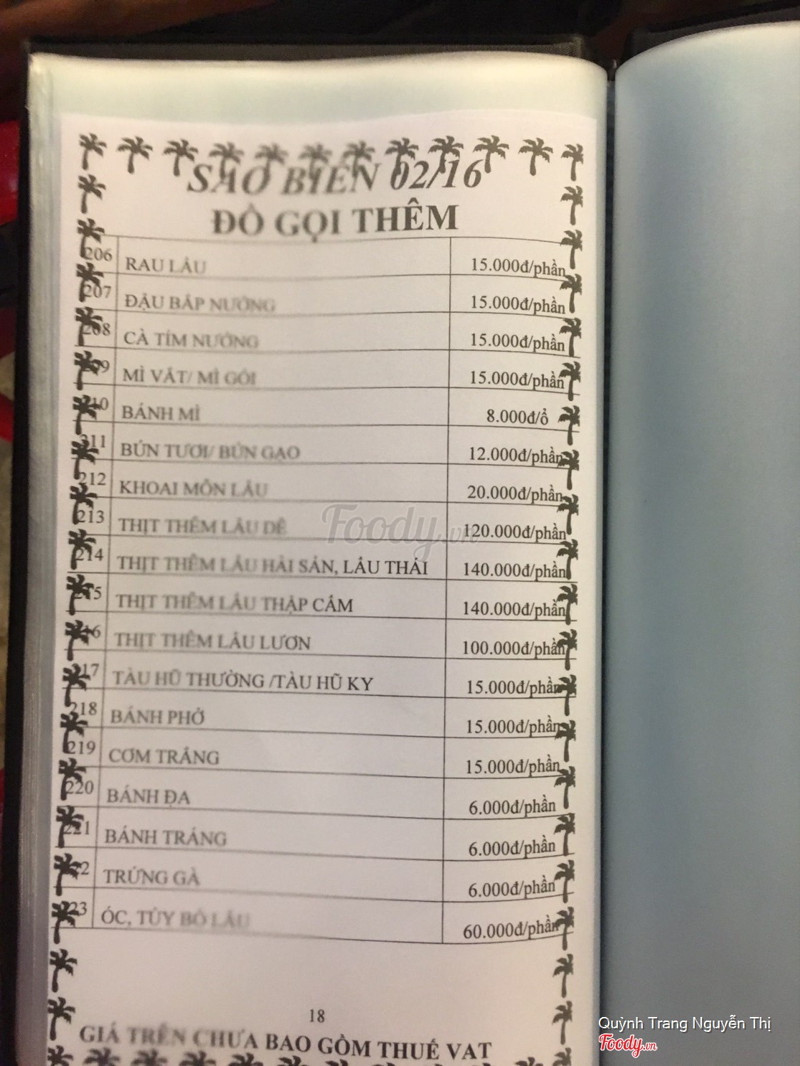 SAO BIỂN 02/16
ĐỒ GỌI THÊM
206 RAU LẨU 15.000đ/phần
207 ĐẬU BẮP NƯỚNG 15.000đ/phần
208 CÀ TÍM NƯỚNG 15.000đ/phần
MÌ VẮT/ MÌ GÓI 15.000đ/phần
BÁNH MÌ 8.000đ/ổ
211 BÚN TƯƠI/ BÚN GẠO 12.000đ/phần
212 KHOAI MÔN LẨU 20.000đ/phần
213 THỊT THÊM LẨU DÊ 120.000đ/phần
214 THỊT THÊM LẨU HẢI SẢN, LẨU THÁI 140.000đ/phần
215 THỊT THÊM LẨU THẬP CẨM 140.000đ/phần
THỊT THÊM LẨU LƯƠN 100.000đ/phần
217 TÀU HŨ THƯỜNG /TÀU HŨ KY 15.000đ/phần
218 BÁNH PHỞ 15.000đ/phần
219 CƠM TRẮNG 15.000đ/phần
220 BÁNH ĐA 6.000đ/phần
221 BÁNH TRÁNG 6.000đ/phần
TRỨNG GÀ 6.000đ/phần
223 ÓC, TỦY BÒ LẨU 60.000đ/phần
18
GIÁ TRÊN CHƯA BAO GỒM THUẾ VAT
Foody.vn
Quỳnh Trang Nguyễn Thị
Foody.vn